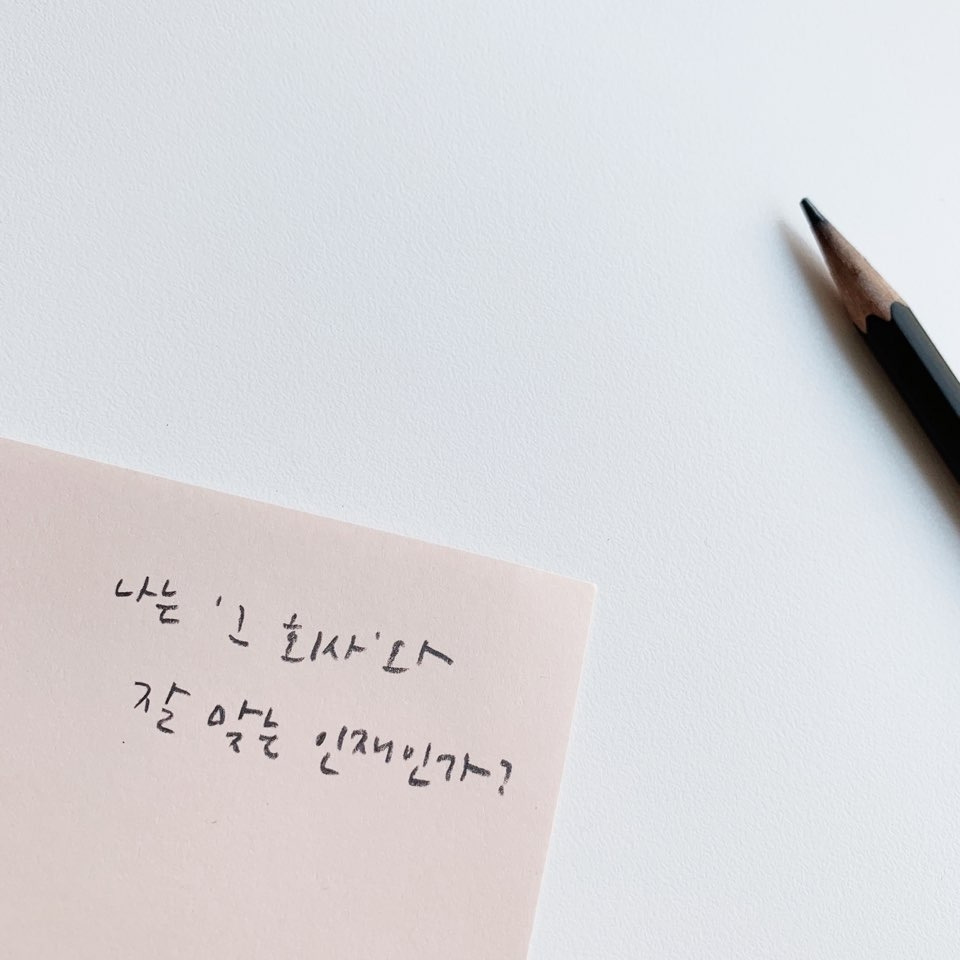 나는 '그 회사'와
잘 맞는 인재인가?